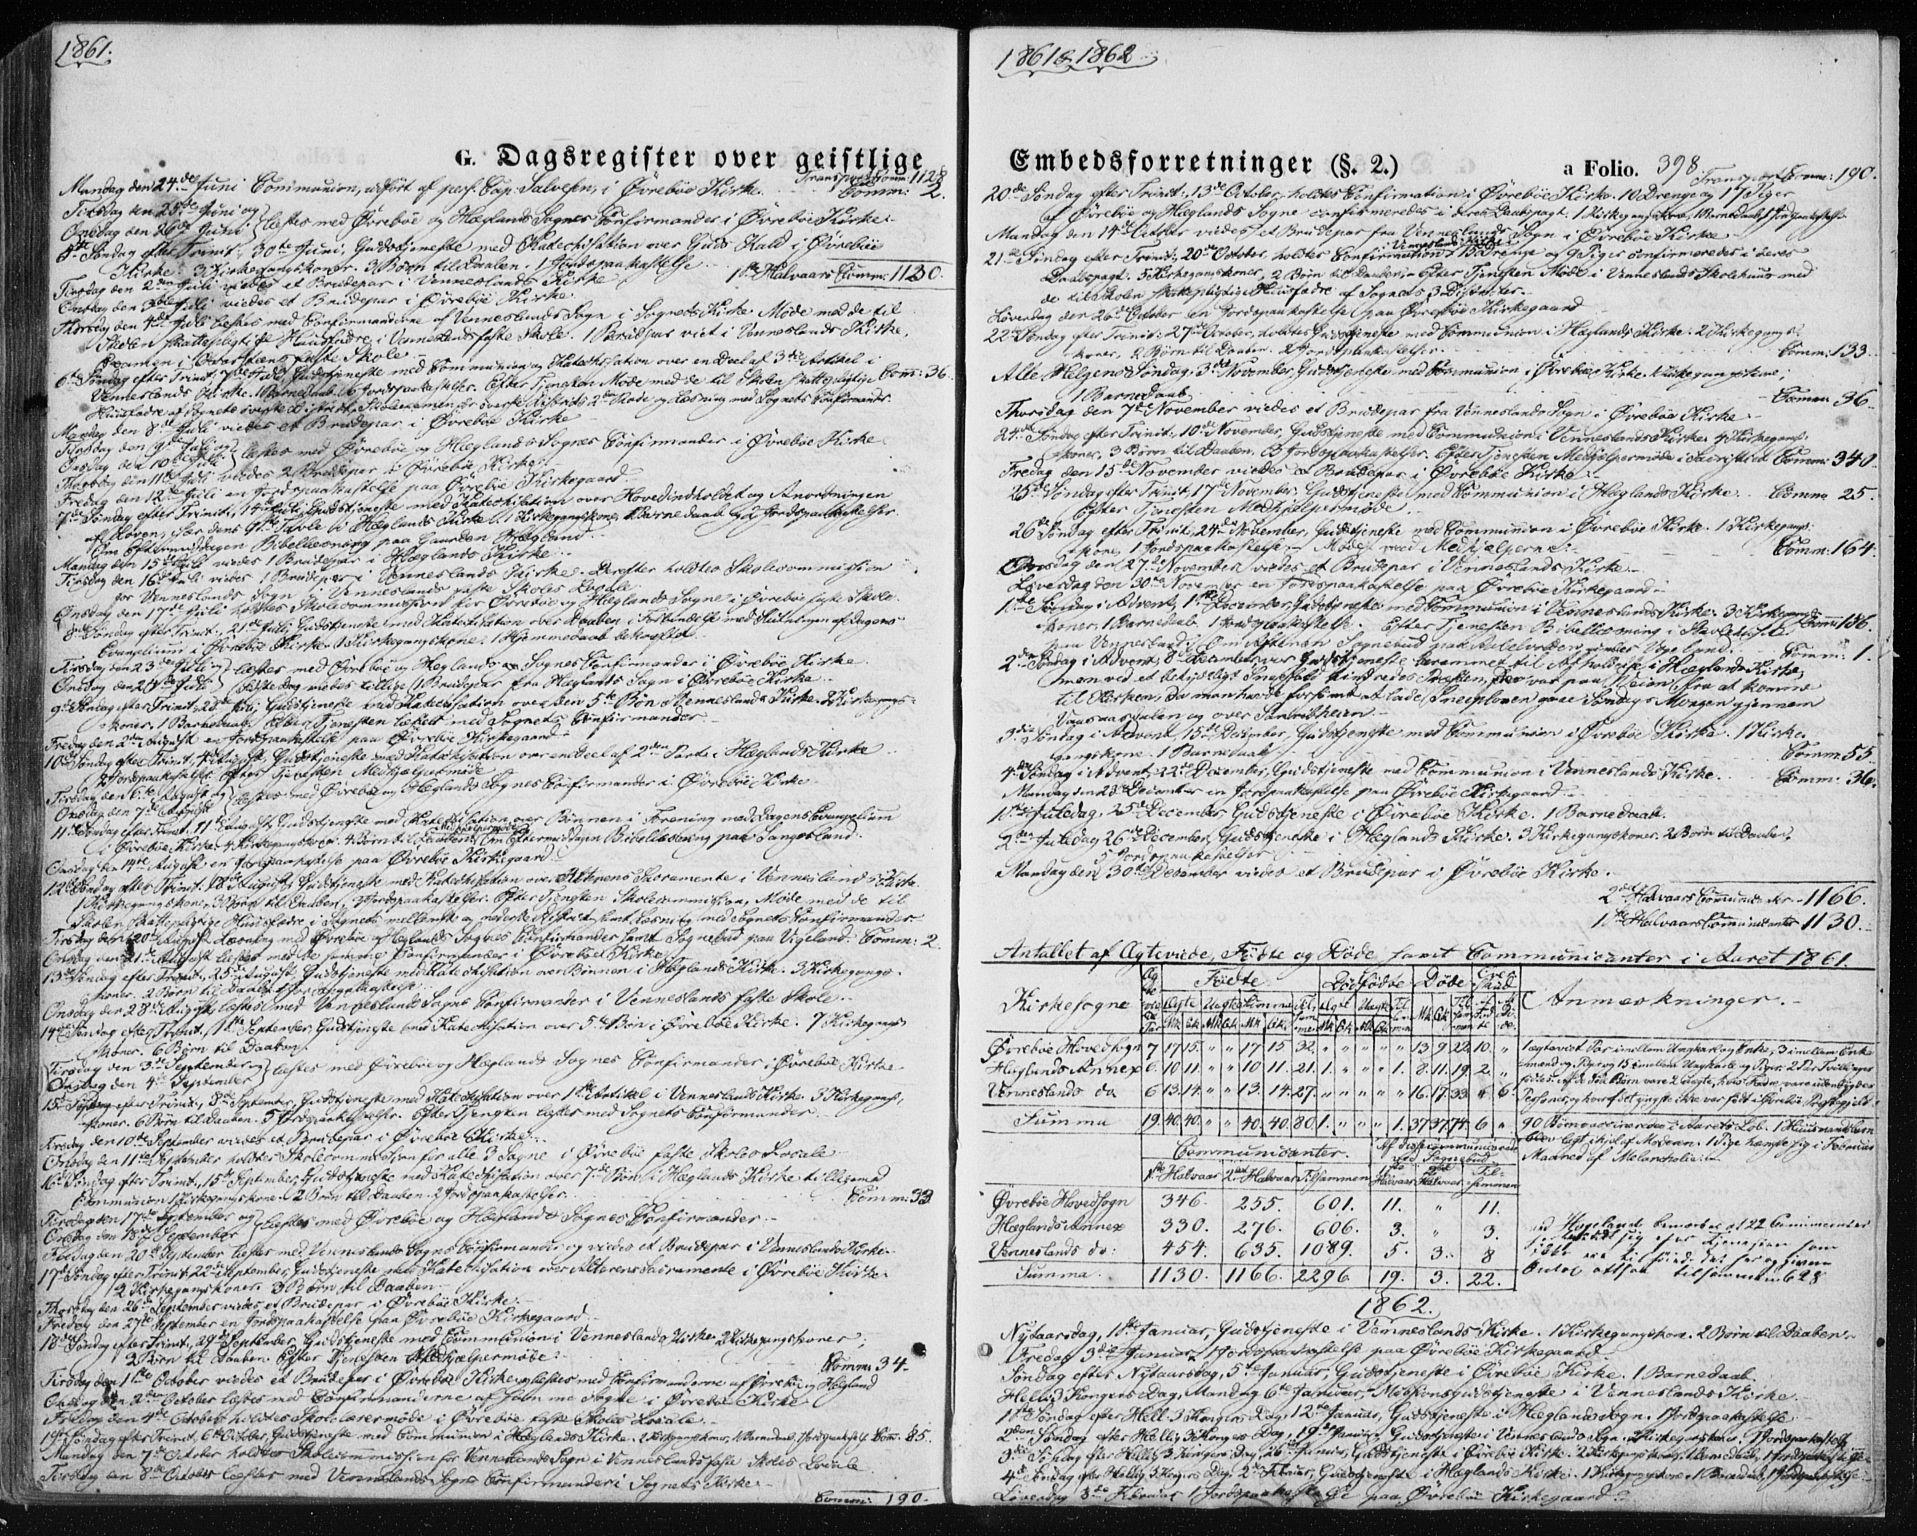 1861.
G. Dagsregister over geistlige
Transport Comm: 1128
Mandag den 24de Juni Communion, udført af pers. Cap. Salvesen, i Øvrebøe Kirke. Comm: 2.
Tirsdag den 25de Juni og
Onsdag den 26de Juni læstes med Øvrebøe og Hæglands Sognes Confirmander i Øvrebøe Kirke.
5te Søndag efter Trinit., 30te Juni, Gudstjeneste med Katechisation over Guds Kald i Øvrebøe
Kirke. 3 Kirkegangskoner. 3 Børn til Daaben. 1 Jordspaakastelse. 1ste Halvaars Comm: 1130
Tirsdag den 2den Juli viedes et Brudepar i Venneslands Kirke
Onsdag den 3die Juli viedes et Brudepar i Øvrebøe Kirke.
Thorsdag den 4de Juli læstes med Confirmanderne af Venneslands Sogn i Sognets Kirke. Møde med de til
Skolen skattepligtige Huusfædre i Venneslands faste Skole. 1 Brudepar viet i Venneslands Kirke.
Examen i faste Skole.
6te Søndag efter Trinit., 7de Juli, Gudstjeneste med Communion og Katechisation over en Deel af 3die Artikel i Comm: 36.
Venneslands Kirke. 1 Barnedaab. 6 Jordspaakastelser. Efter Tjenesten Møde med de til Skolen skattepligtige
Huusfædre af Sognets
Mandag den 8de Juli viedes et Brudepar i Øvrebøe Kirke
Tirsdag den 9de Juli og
Onsdag den 10de Juli læstes med Øvrebøe og Hæglands Sognes Confirmander i Øvrebøe Kirke.
Thorsdag den 11te Juli viedes 2 Brudepar i Øvrebøe Kirke.
Fredag den 12te Juli en Jordspaakastelse paa Øvrebøe Kirkegaard.
7de Søndag efter Trinit., 14de Juli, Gudstjeneste med Katechisation over Hovedindholdet og Anordningen
af Loven, samt dens 1ste Tavle i Hæglands Kirke. 1 Kirkegangskone, 1 Barnedaab og 2 Jordspaakastelser.
Om Eftermiddagen Bibellæsning paa Gaarden Hægland.
Mandag den 15de Juli viedes 1 Brudepar i Hæglands Kirke.
Tirsdag den 16de Juli viedes 1 Brudepar i Venneslands Kirke. Derefter holdtes Skolecommission
for Venneslands Sogn i Venneslands faste Skoles Locale.
Onsdag den 17de Juli holdtes Skolecommission for Øvrebøe og Hæglands Sogne i Øvrebøe faste Skole.
8de Søndag efter Trinit., 21de Juli, Gudstjeneste med Katechisation over Daaben i Forbindelse med Slutningen af Dagens
Evangelium i Øvrebøe Kirke. 1 Kirkegangskone. 1 Hjemmedaab bekræftet.
Tirsdag den 23de Juli og
Onsdag den 24de Juli læstes med Øvrebøe og Hæglands Sognes Confirmander i Øvrebøe Kirke.
Sidste Dag viedes tillige 1 Brudepar fra Hæglands Sogn i Øvrebøe Kirke.
9de Søndag efter Trinit., 28de Juli, Gudstjeneste med Katechisation over den 5te Bøn i Venneslands Kirke. 2 Kirkegangs-
koner. 1 Barnedaab. Efter Tjenesten læstes med Sognets Confirmander.
Fredag den 2den August en Jordspaakastelse paa Øvrebøe Kirkegaard.
10de Søndag efter Trinit., 4de August, Gudstjeneste med Katechisation over en deel af 2den Parts i Hæglands Kirke
Jordspaakastelse. Efter Tjenesten Medhjelpermøde
Tirsdag den 6te August og
Onsdag den 7de August læstes med Øvrebøe og Hæglands Sognes Confirmander i Øvrebøe Kirke.
11te Søndag efter Trinit., 11te August, Gudstjeneste med Katechisation over Bønnen i Forening med Dagens Evangelium
i Øvrebøe Kirke. 4 Kirkegangskoner. 4 Børn til Daaben. Medhjelpermøde. Om Eftermiddagen Bibellæsning paa Langesland.
Onsdag den 14de August en Jordspaakastelse paa Øvrebøe Kirkegaard.
12te Søndag efter Trinit., 18de August, Gudstjeneste med Katechisation over Alterens Sacramente i Venneslands Kirke.
1 Kirkegangskone, 3 Børn til Daaben, 2 Jordspaakastelser. Efter Tjenesten Skolecommission, Møde med de til
Skolen skattepligtige Huusfædre i Sognets mellemste og nederste District samt Læsning med Sognets Confirmander
Tirsdag den 20de August Læsning med Øvrebøe og Hæglands Sognes Confirmander samt Sognebud paa Vigeland. Comm: 2.
Onsdag den 21de August læstes med de samme Confirmander i Øvrebøe Kirke.
13de Søndag efter Trinit., 25de August, Gudstjeneste med Katechisation over Bønnen i Hæglands Kirke. 3 Kirkegangs-
koner. 2 Børn til Daab. 1 Jordspaakastelse.
Onsdag den 28de August læstes med Venneslands Sogns Confirmander i Venneslands faste Skole.
14de Søndag efter Trinit., 1ste September, Gudstjeneste med Katechisation over 5te Bøn i Øvrebøe Kirke. 7 Kirkegangs-
koner. 6 Børn til Daaben.
Tirsdag den 3die September og
Onsdag den 4de September læstes med Øvrebøe og Hæglands Sognes Confirmander i Øvrebøe Kirke.
15de Søndag efter Trinit., 8de September, Gudstjeneste med Katechisation over 1ste Artikel i Venneslands Kirke. 5 Kirkegangs-
koner. 6 Børn til Daaben. 5 Jordspaakastelser. Efter Tjenesten læstes med Sognets Confirmander.
Tirsdag den 10de September viedes et Brudepar i Øvrebøe Kirke.
Onsdag den 11te September holdtes Skolecommission for alle 3 Sogne i Øvrebøe faste Skoles Locale
16de Søndag efter Trinit., 15de September, Gudstjeneste med Katechisation over 7de Bøn i Hæglands Kirke tilligemed
Communion. 1 Kirkegangskone. 2 Børn til Daaben. 2 Jordspaakastelser. Comm: 33
Tirsdag den 17de September og
Onsdag den 18de September læstes med Øvrebøe og Hæglands Sognes Confirmander.
Fredag den 20de September læstes med Venneslands Sogns Confirmander og viedes et Brudepar i Venneslands Kirke.
17de Søndag efter Trinit., 22de September, Gudstjeneste med Katechisation over Alterens Sacramente i Øvrebøe Kirke.
2 Kirkegangskoner. 3 Børn til Daaben.
Thorsdag den 26de September viedes et Brudepar i Øvrebøe Kirke.
Fredag den 27de September en Jordspaakastelse paa Øvrebøe Kirkegaard.
18de Søndag efter Trinit., 29de September, Gudstjeneste med Communion i Venneslands Kirke. 2 Kirkegangskoner,
2 Børn til Daaben. Efter Tjenesten Medhjælpermøde. Comm: 34.
Tirsdag den 1ste October viedes et Brudepar i Øvrebøe Kirke og læstes med Confirmanderne af Øvrebøe og Hægland
Onsdag den 2den October læstes med Confirmanderne af samme Sogne i Øvrebøe Kirke
Fredag den 4de October holdtes Skolelærermøde i Øvrebøe faste Skoles Locale.
19de Søndag efter Trinit., 6te October, Gudstjeneste med Communion i Hæglands Kirke. 2 Kirkegangskoner, 1 Barnedaab, 1 Jordspaakastelse. Comm: 85.
Mandag den 7de October holdtes Skolecommission for Venneslands Sogn i Venneslands faste Skoles Locale
Tirsdag den 8de October læstes med Venneslands Sogns Confirmander i Sognets Kirke.
Comm: 190.
1861 & 1862
Embedsforretninger (§. 2.) a Folio. 398
Transport Comm: 190.
20de Søndag efter Trinit., 13de October, holdtes Confirmation i Øvrebøe Kirke. 10 Drenge og 17 Piger
af Øvrebøe og Hæglands Sogne confirmeredes i deres Daabspagt. 1 Kirkegangskone, 1 Barnedaab, 1 Jordspaakastelse
Mandag den 14de October viedes et Brudepar fra Venneslands Sogn i Øvrebøe Kirke.
21de Søndag efter Trinit., 20de October, holdtes Confirmation i Venneslands Kirke. 15 Drenge og 9 Piger confirmeredes i deres
Daabspagt. 5 Kirkegangskoner, 2 Børn til Daaben. Efter Tjenesten Møde i Venneslands Skolehuus med
de til Skolen skattepligtige Huusfædre af Sognets 3 Districter.
Løverdag den 26de October en Jordspaakastelse paa Øvrebøe Kirkegaard
22de Søndag efter Trinit., 27de October, holdtes Gudstjeneste med Communion i Hæglands Kirke. 2 Kirkegangs-
koner, 2 Børn til Daaben. 2 Jordspaakastelser. Comm: 133
Alle Helgens Søndag, 3die November, Gudstjeneste med Communion i Øvrebøe Kirke. 1 Kirkegangskone,
1 Barnedaab. Comm: 36.
Thorsdag den 7de November viedes et Brudepar fra Venneslands Sogn i Øvrebøe Kirke.
24de Søndag efter Trinit., 10de November, Gudstjeneste med Communion i Venneslands Kirke. 4 Kirkegangs-
koner, 3 Børn til Daaben. 3 Jordspaakastelser. Efter Tjenesten Medhjelpermøde i Sacristiet. Comm: 340
Fredag den 15de November viedes et Brudepar i Øvrebøe Kirke.
25de Søndag efter Trinit., 17de November, Gudstjeneste med Communion i Hæglands Kirke. Comm: 25.
Efter Tjenesten Medhjælpermøde.
26de Søndag efter Trinit., 24de November, Gudstjeneste med Communion i Øvrebøe Kirke. 1 Kirkegangs-
kone, 1 Jordspaakastelse. Møde med Medhjelperne. Comm: 164.
Onsdag den 27de November viedes et Brudepar i Venneslands Kirke.
Løverdag den 30te November en Jordspaakastelse paa Øvrebøe Kirkegaard.
1ste Søndag i Advent, 1ste December, Gudstjeneste med Communion i Venneslands Kirke. 3 Kirkegangs-
koner, 1 Barnedaab, 1 Jordspaakastelse. Efter Tjenesten Bibellæsning i Comm: 186.
paa Vennesland. Om Aftenen Sognebud paa under Vigeland. Comm: 1.
2den Søndag i Advent, 8de December, var Gudstjeneste berammet til Afholdelse i Hæglands Kirke,
men ved et betydeligt Sneefald hindredes Præsten, der var paa Veien, fra at komme
til Kirken, da man havde forsømt at lade Sneeplogen gaae Søndags Morgen gjennem
og over
3die Søndag i Advent, 15de December, Gudstjeneste med Communion i Øvrebøe Kirke. 1 Kirke-
gangskone. 1 Barnedaab. Comm: 55.
4de Søndag i Advent, 22de December, Gudstjeneste med Communion i Venneslands Kirke. Comm: 36.
Mandag den 23de December en Jordspaakastelse paa Øvrebøe Kirkegaard.
1ste Juledag, 25de December, Gudstjeneste i Øvrebøe Kirke. 1 Barnedaab.
2den Juledag, 26de December, Gudstjeneste i Hæglands Kirke. 3 Kirkegangskoner. 2 Børn til Daaben,
5 Jordspaakastelser.
Mandag den 30te December viedes et Brudepar i Øvrebøe Kirke.
2det Halvaars Communicanter 1166.
1ste Halvaars Communicanter 1130.
Antallet af Ægteviede, Fødte og Døde samt Communicanter i Aaret 1861.
Kirkesogne Fødte Dødfødte Døde Anmerkninger.
Ægte Uægte Summa
Mk. Qk.
Øvrebøe Hovedsogn 7 17 15. " " 17 15 32. " " " " " 13. 9. 22. 10. "
Hæglands Annex 6. 10. 11. " " 10. 11. 21. 1. " " " 1. 8. 11. 19. 2. "
Venneslands do 6 13. 14. " " 13. 14. 27. " " " " " 16. 17. 33. " 6
Summa 19. 40. 40. " " 40. 40. 80. 1. " " " 1. 37. 37. 74. 6 "
1 ægteviet Par imellem Ungkarl og Enke, 3 imellem Enke-
mand og Pige og 15 imellem Ungkarle og Piger. 2 Par Tvillinger
90 Børn vaccineredes i Aarets Løb.
Maaned af Melancholie.
Communicanter. Af disse communicerede ved Sognebud
1ste Halvaar 2det Halvaar Tilsammen 1ste Halvaar 2det Halvaar Tilsammen
Øvrebøe Hovedsogn 346 255. 601. 11. " 11.
Hæglands Annex 330. 276. 606. 3. " 3.
Venneslands do: 454. 635. 1089. 5. 3. 8
Summa. 1130. 1166. 2296 19. 3. 22.
Ved Hægeland bemærkes at 22 Communicanter
sig efter Tjenesten som
ikke ere tilføiet det her ovengivne
Antal altsaa tilsammen 628
1862.
Nytaarsdag, 1ste Januar, Gudstjeneste i Venneslands Kirke. 1 Kirkegangskone. 2 Børn til Daaben.
Fredag 3die Januar, 1 Jordspaakastelse paa Øvrebøe Kirkegaard
Søndag efter Nytaarsdag, 5te Januar, Gudstjeneste i Øvrebøe Kirke. 1 Barnedaab.
Hellig 3 Kongers Dag, Mandag 6te Januar, Missionsgudstjeneste i Venneslands Kirke.
1ste Søndag efter Hell. 3 Kongers Dag, 12te Januar, Gudstjeneste i Hæglands Sogn. 1 Jordspaakastelse
2den Søndag efter Hellig 3 Kongers Dag, 19de Januar, Gudstjeneste i Venneslands Sogn. 1 Kirkegangskone. 1 Jordspaakastelse
3die Søndag efter Hellig 3 Kongers Dag, 26de Januar, Gudstjeneste i Øvrebøe Kirke. 2 Kirkegangskoner, 1 Barnedaab, 1 Jordspaakastelse.
4de Søndag efter Hellig 3 Kongers Dag, 2den Februar, Gudstjeneste i Hæglands Kirke. 1 Kirkegangskone. 1 Barnedaab, 1 Jordspaakastelse.
Løverdag 8de Februar 1 Jordspaakastelse paa Øvrebøe Kirkegaard